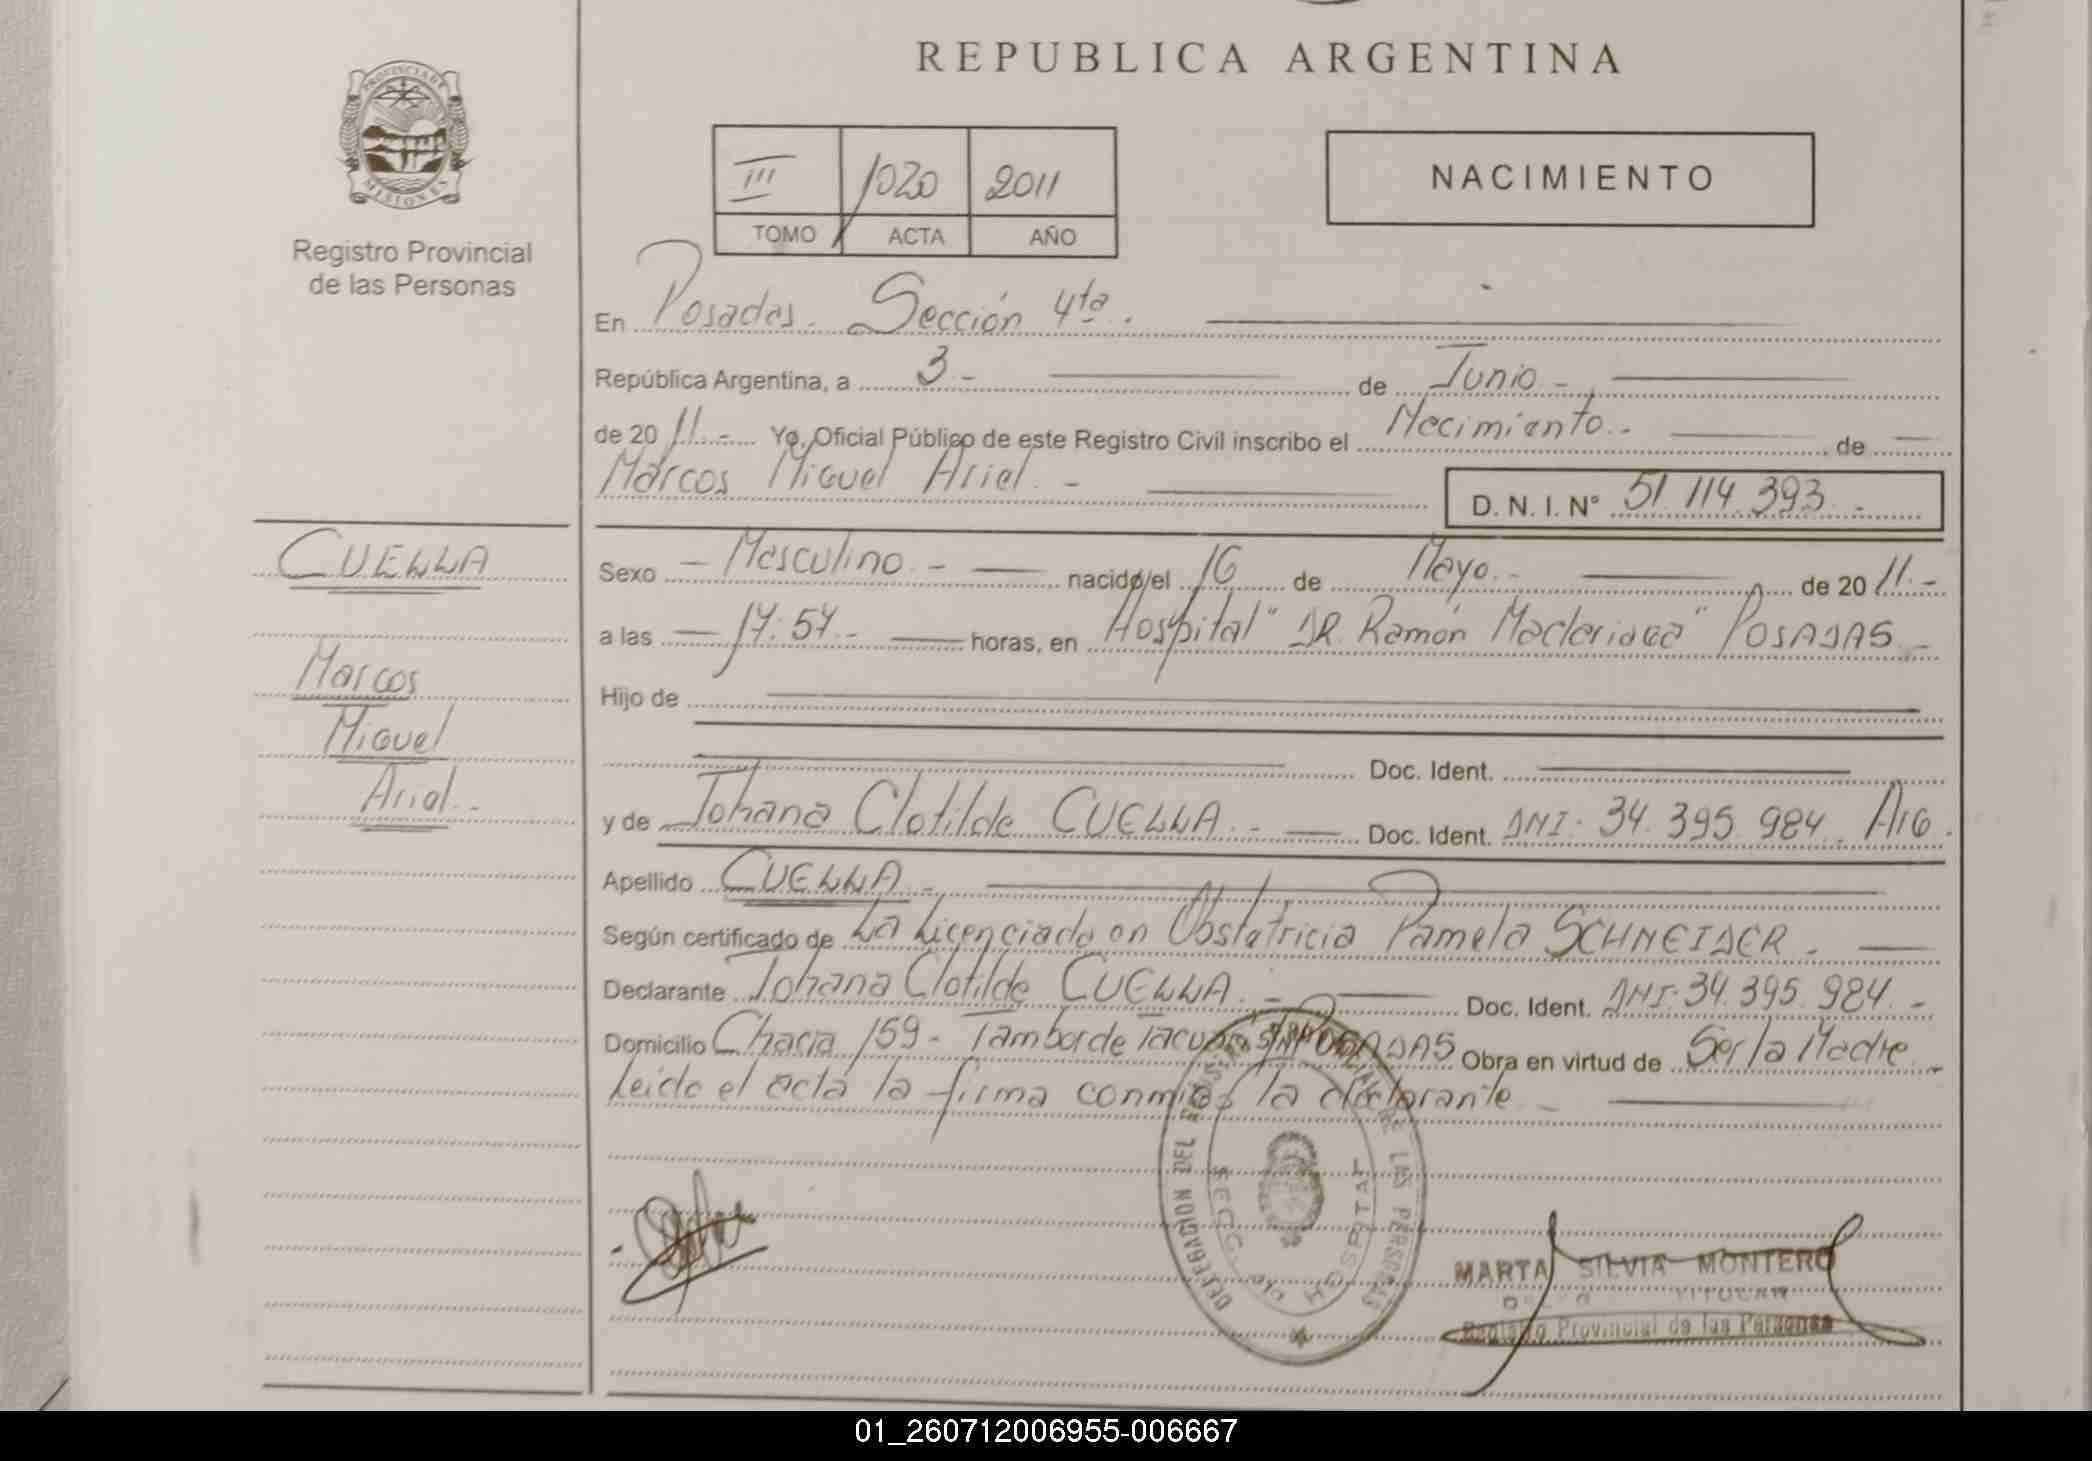 REPUBLICA ARGENTINA
PROVINCIA DE
MISIONES
Registro Provincial
de las Personas
III 1020 2011
TOMO ACTA AÑO
NACIMIENTO
En Posadas. Sección 4ta.
República Argentina, a 3 - de Junio -
de 2011.- Yo, Oficial Público de este Registro Civil inscribo el Nacimiento.- de
Marcos Miguel Ariel. - D. N. I. N° 51.114.393.-
CUELLA
Sexo - Masculino. - nacido/el 16 de Mayo.- de 2011.-
a las 17:57.- horas, en Hospital "DR. Ramón Madariaga" POSADAS.-
Marcos
Miguel
Ariel.-
Hijo de
Doc. Ident.
y de Johana Clotilde CUELLA.- Doc. Ident. DNI: 34.395.984. Arg.
Apellido CUELLA.-
Según certificado de La Licenciada en Obstetricia Pamela SCHNEIDER.-
Declarante Johana Clotilde CUELLA.- Doc. Ident. DNI: 34.395.984.-
Domicilio Chacra 159 - Tambor de Tacuarí POSADAS Obra en virtud de Ser la Madre.
Leída el acta la firma conmigo la declarante.-
DELEGACION DEL REGISTRO PROVINCIAL DE LAS PERSONAS
SECC. 4ta HOSPITAL
MARTA SILVIA MONTERO
TITULAR
Registro Provincial de las Personas
01_260712006955-006667